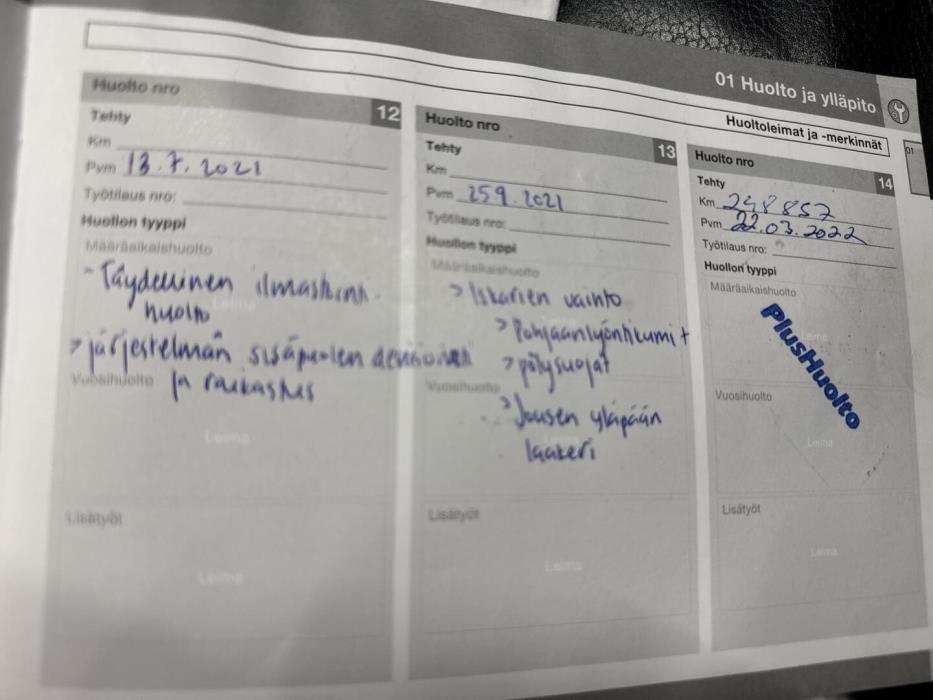 01 Huolto ja ylläpito
Huoltoleimat ja -merkinnät
01
Huolto nro
12
Tehty
Km
Pvm 13.7.2021
Työtilaus nro:
Huollon tyyppi
Määräaikaishuolto
- Täydellinen ilmastoinn.
huolto
> järjestelmän sisäpuolen
Vuosihuolto
ja raikastus
Leima
Lisätyöt
Leima
Huolto nro
13
Tehty
Km
Pvm 25.9.2021
Työtilaus nro:
Huollon tyyppi
Määräaikaishuolto
> Iskarien vaihto
> Pohjaanlyöntikumit
> pölysuojat
Vuosihuolto
> Jousen yläpään
laakeri
Lisätyöt
Leima
Huolto nro
14
Tehty
Km 248857
Pvm 22.03.2022
Työtilaus nro:
Huollon tyyppi
Määräaikaishuolto
Leima
PlusHuolto
Vuosihuolto
Leima
Lisätyöt
Leima